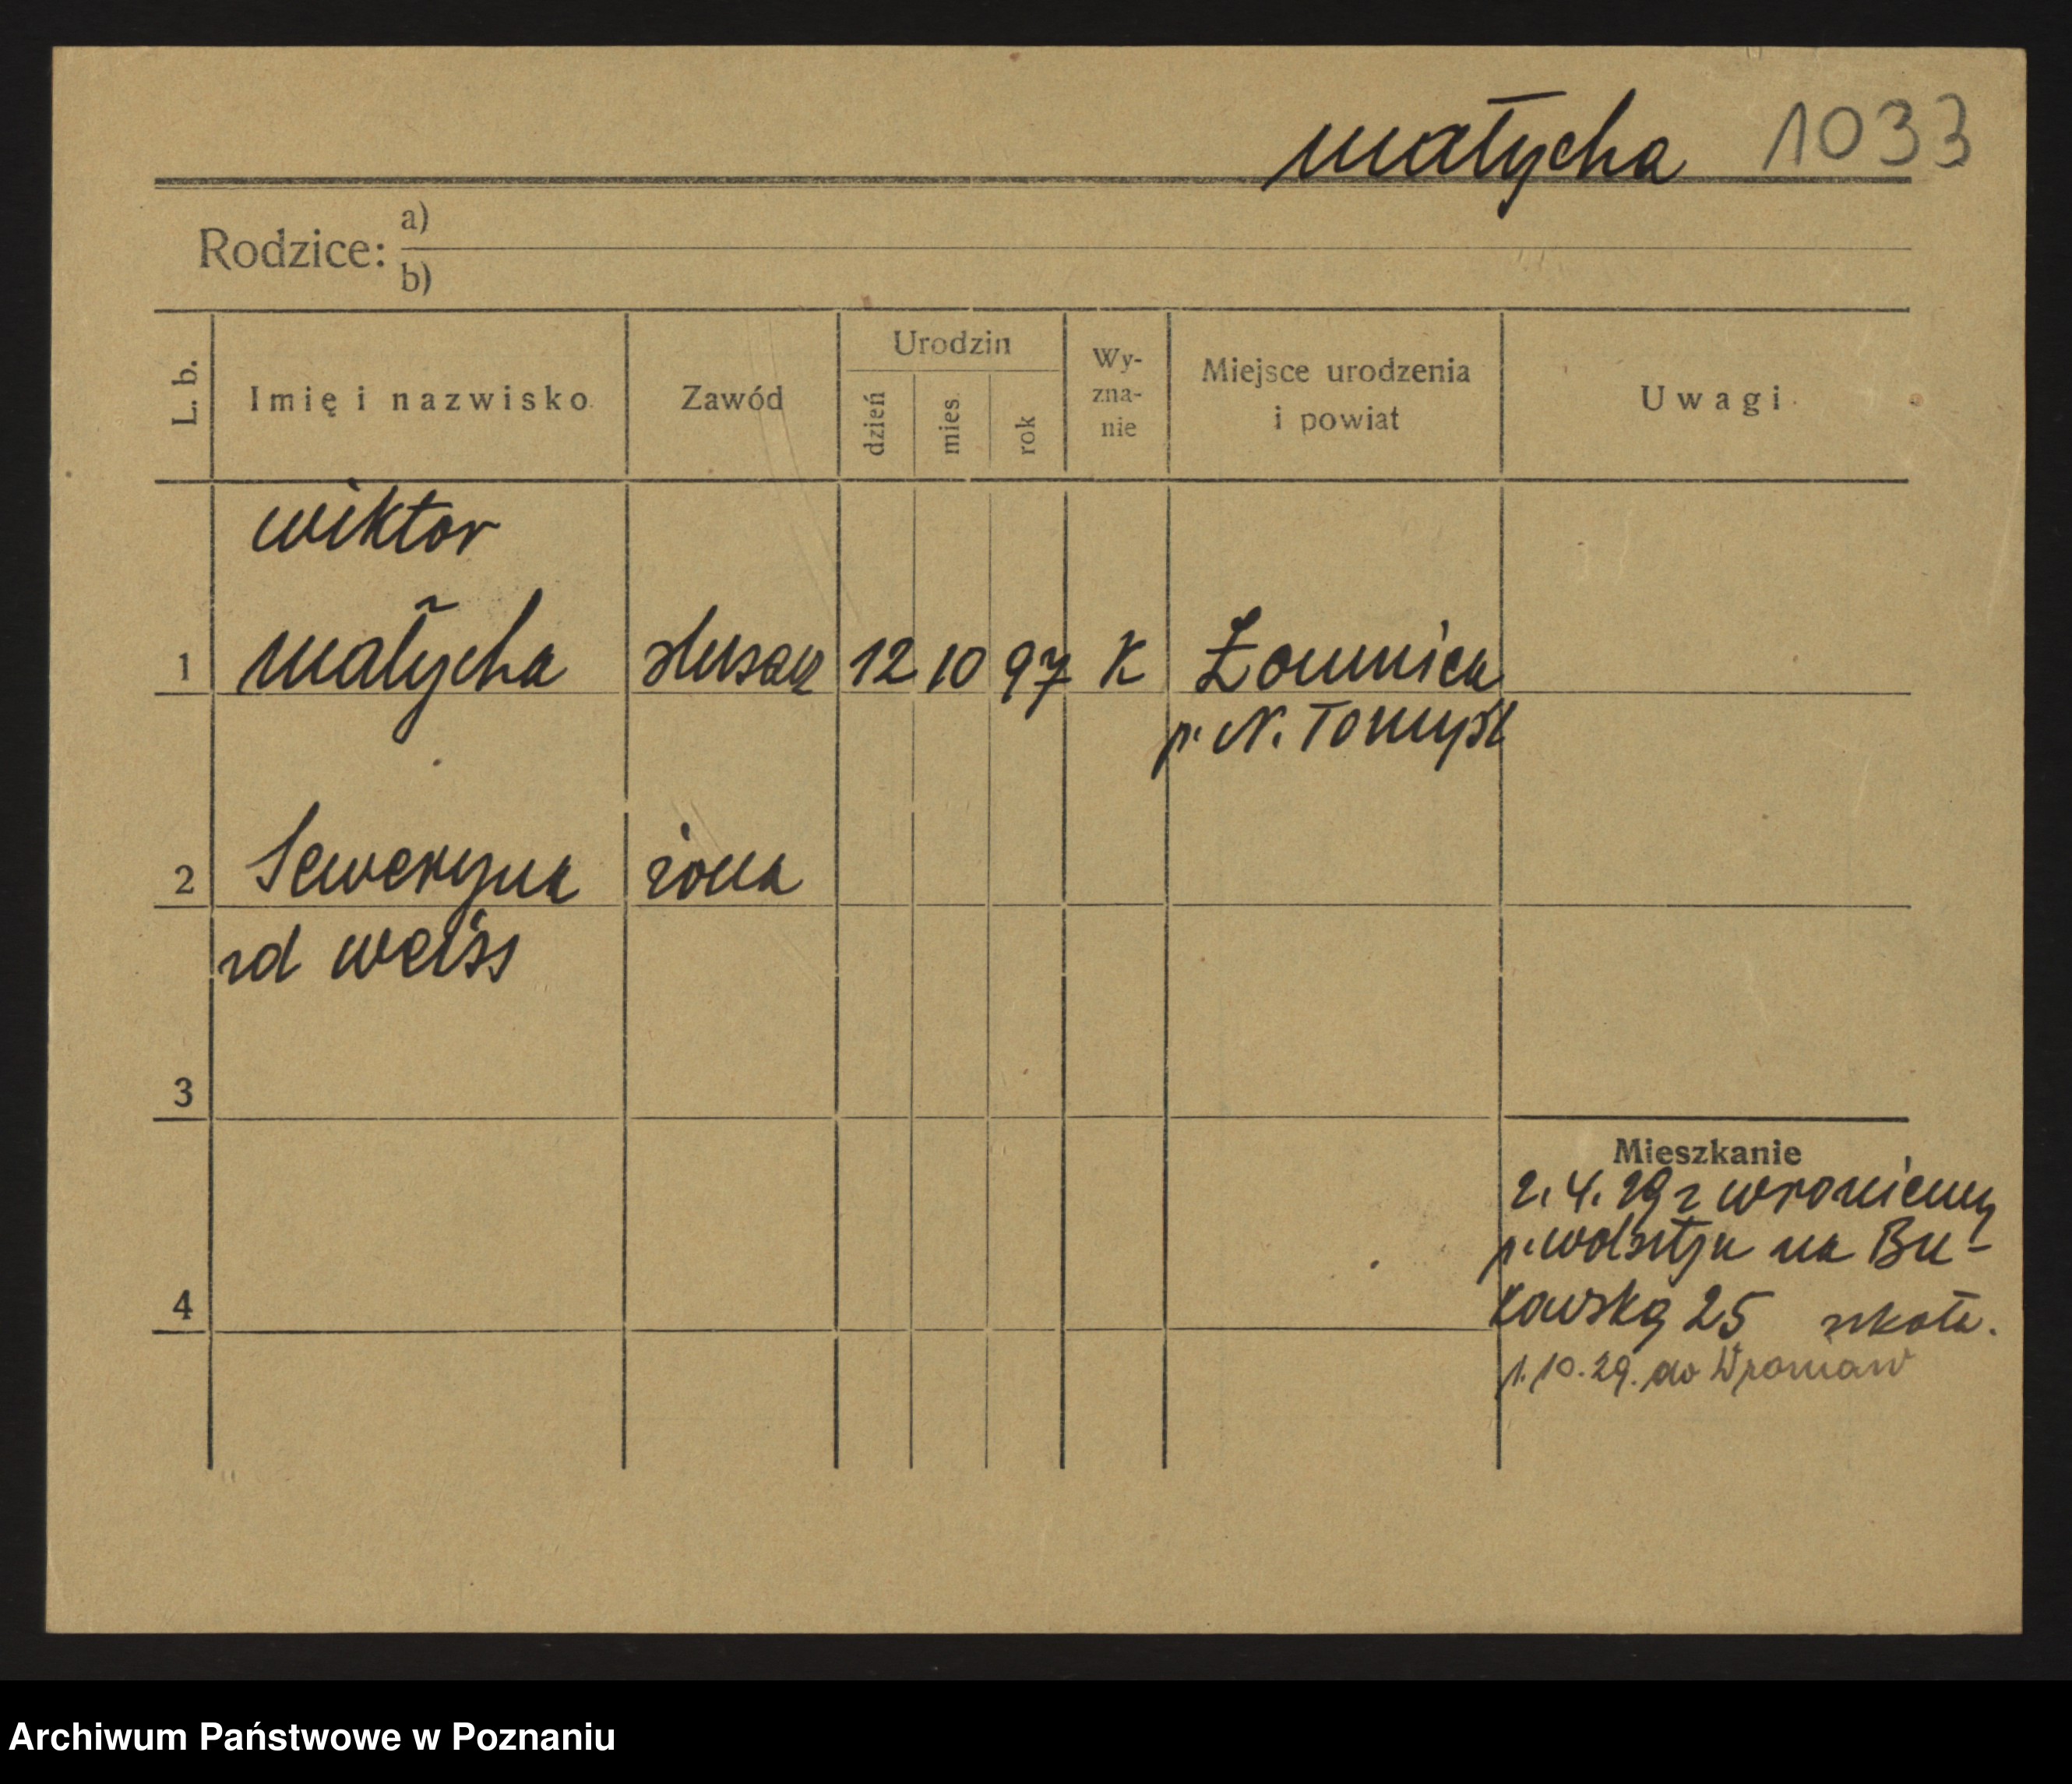 Małycha 1033
Rodzice: a)
b)
L. b.
Imię i nazwisko
Zawód
Urodzin
dzień
mies.
rok
Wy-
zna-
nie
Miejsce urodzenia
i powiat
Uwagi
Wiktor
1 Małycha ślusarz 12 10 97 K Łomnica
p. N. Tomyśl
2 Seweryna żona
zd Weiss
3
Mieszkanie
2. 4. 29 z Wroniawy
p. Wolsztyn na Bu-
4
kowską 25 szkoła.
1.10.29. do Wroniaw
Archiwum Państwowe w Poznaniu